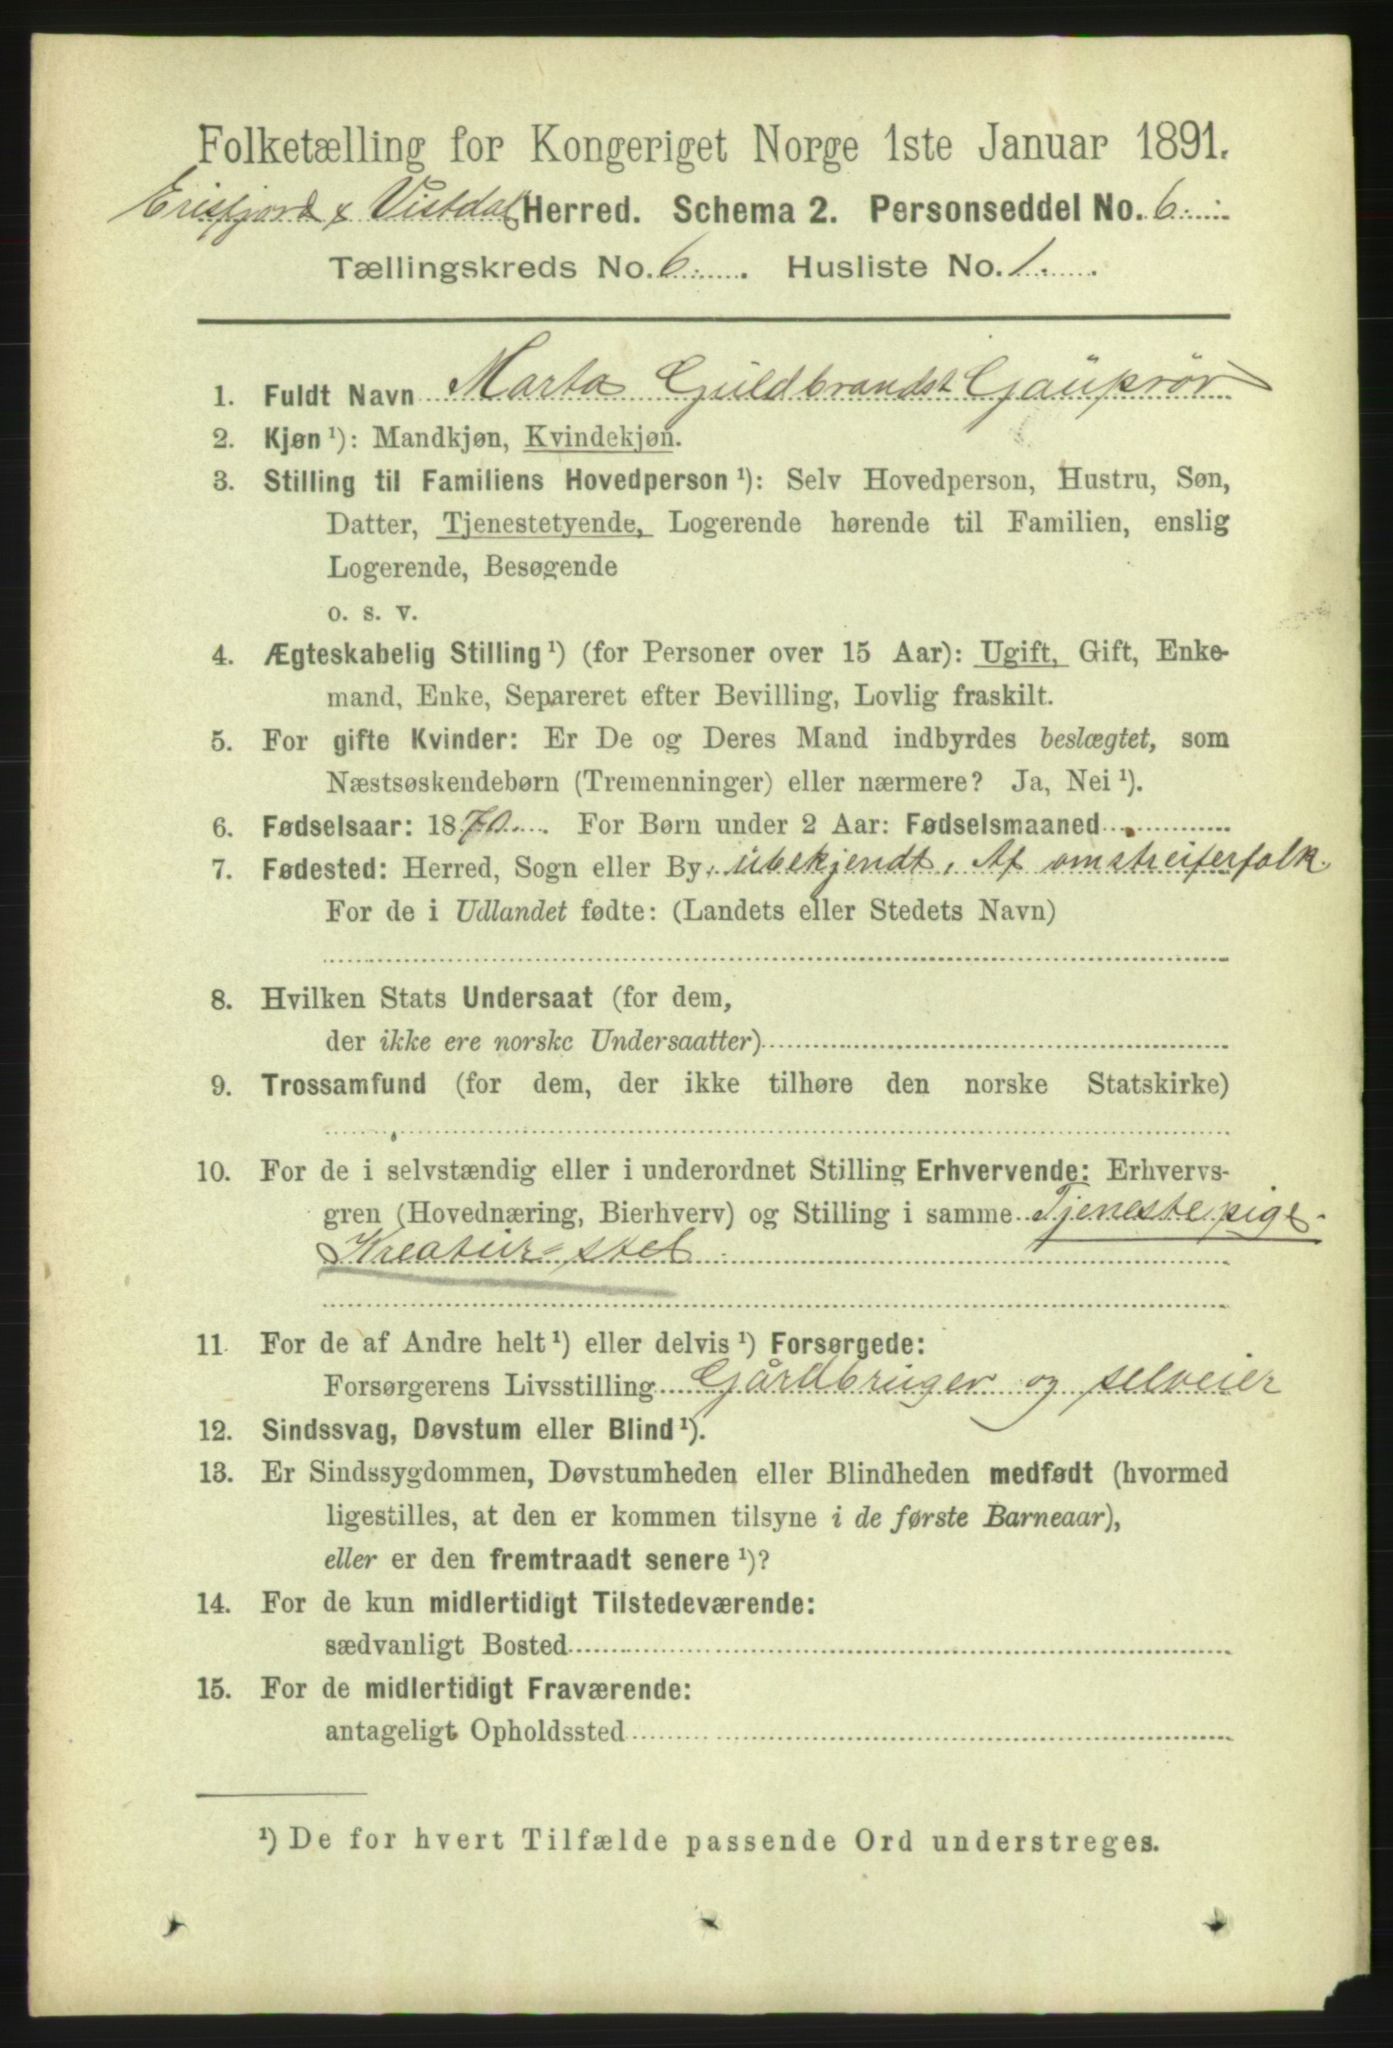 Folketælling for Kongeriget Norge 1ste Januar 1891.
Erisfjord & Vistdal Herred. Schema 2. Personseddel No. 6
Tællingskreds No. 6. Husliste No. 1.
1. Fuldt Navn Marta Guldbrandst Gauprør
2. Kjøn ¹): Mandkjøn, Kvindekjøn.
3. Stilling til Familiens Hovedperson ¹): Selv Hovedperson, Hustru, Søn,
Datter, Tjenestetyende, Logerende hørende til Familien, enslig
Logerende, Besøgende
o. s. v.
4. Ægteskabelig Stilling ¹) (for Personer over 15 Aar): Ugift, Gift, Enke-
mand, Enke, Separeret efter Bevilling, Lovlig fraskilt.
5. For gifte Kvinder: Er De og Deres Mand indbyrdes beslægtet, som
Næstsøskendebørn (Tremenninger) eller nærmere? Ja, Nei ¹).
6. Fødselsaar: 1870. For Børn under 2 Aar: Fødselsmaaned
7. Fødested: Herred, Sogn eller By, ubekjendt. Af omstreiferfolk.
For de i Udlandet fødte: (Landets eller Stedets Navn)
8. Hvilken Stats Undersaat (for dem,
der ikke ere norske Undersaatter)
9. Trossamfund (for dem, der ikke tilhøre den norske Statskirke)
10. For de i selvstændig eller i underordnet Stilling Erhvervende: Erhvervs-
gren (Hovednæring, Bierhverv) og Stilling i samme Tjenestepige.
Kreatur-stel
11. For de af Andre helt ¹) eller delvis ¹) Forsørgede:
Forsørgerens Livsstilling Gårdbruger og selveier
12. Sindssvag, Døvstum eller Blind ¹).
13. Er Sindssygdommen, Døvstumheden eller Blindheden medfødt (hvormed
ligestilles, at den er kommen tilsyne i de første Barneaar),
eller er den fremtraadt senere ¹)?
14. For de kun midlertidigt Tilstedeværende:
sædvanligt Bosted
15. For de midlertidigt Fraværende:
antageligt Opholdssted
¹) De for hvert Tilfælde passende Ord understreges.